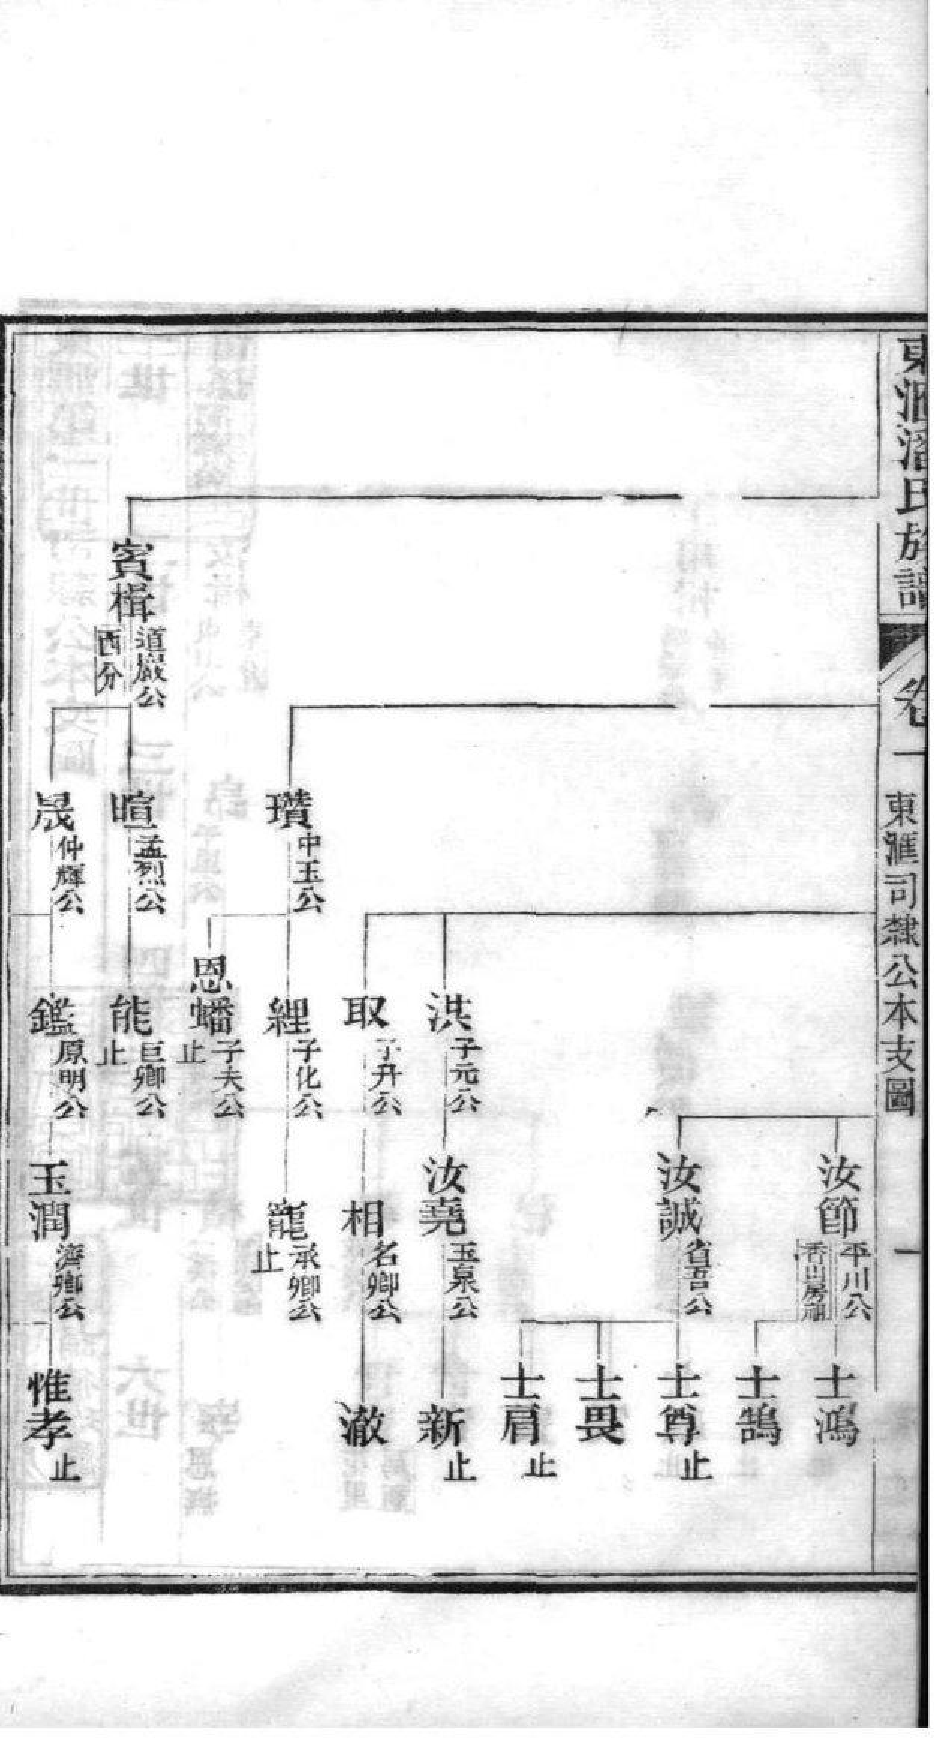 東滙潘氏族譜
卷一
東滙司隸公本支圖
一
汝節
平川公
香山房祖
士鴻
士鵠
汝誠
省吾公
士尊
止
士畏
士肩
止
洪
子元公
汝堯
玉泉公
新
止
取
子升公
相
名卿公
澈
瓚
中玉公
經
子化公
寵
承卿公
止
恩蟠
子夫公
止
賓楫
道嚴公
西分
暄
孟烈公
能
巨卿公
止
晟
仲輝公
鑑
原明公
玉潤
濟卿公
惟孝
止